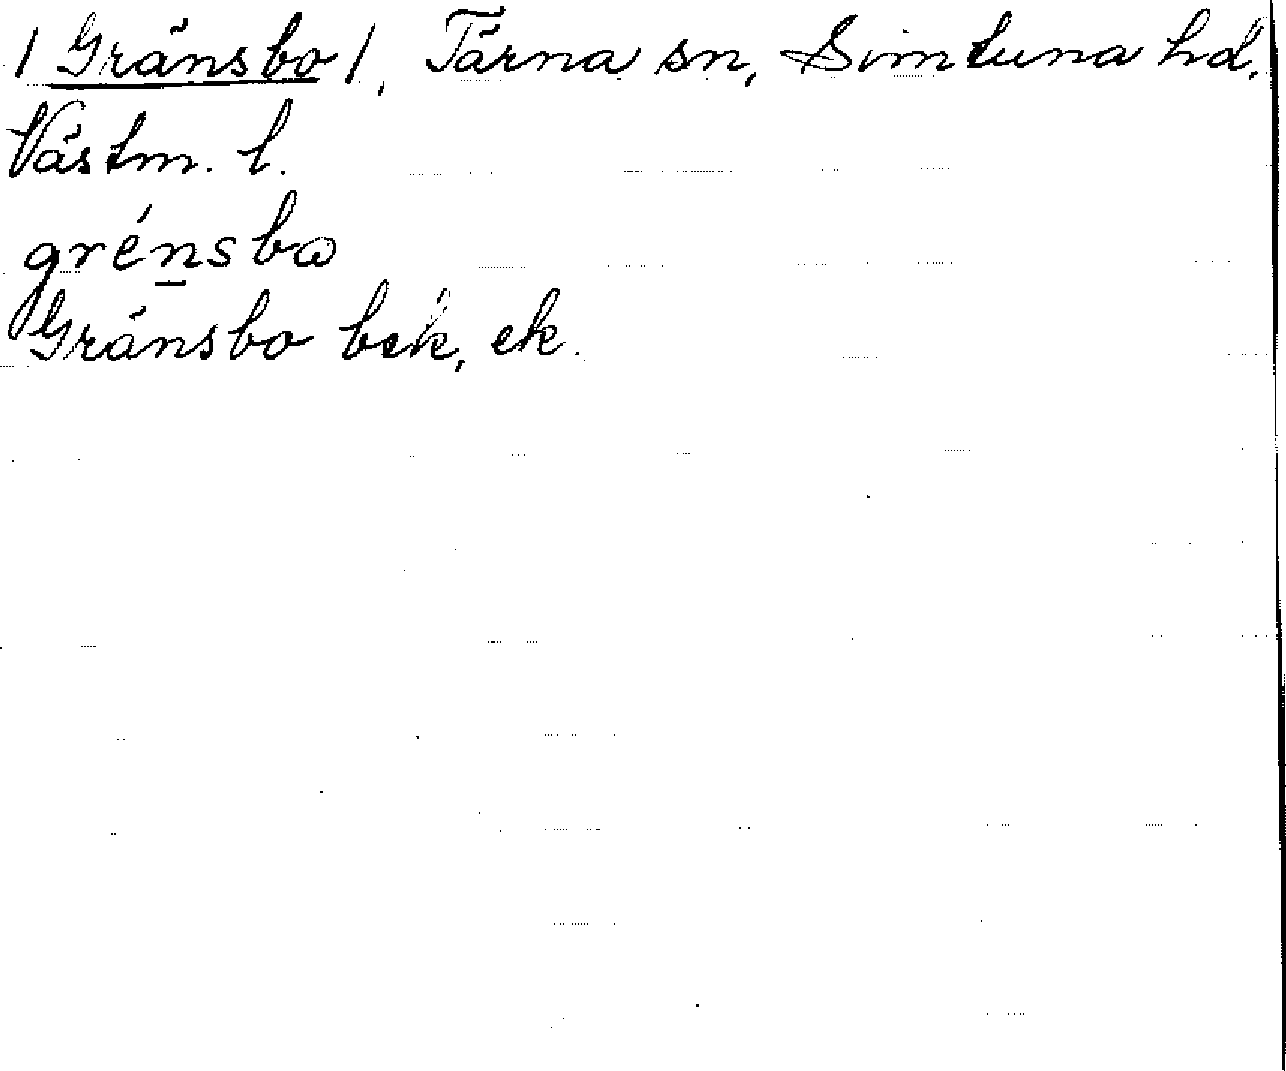 /Gränsbo/, Tärna sn, Simtuna hd,
Västm. l.
grénsbω
Gränsbo bek, ek.